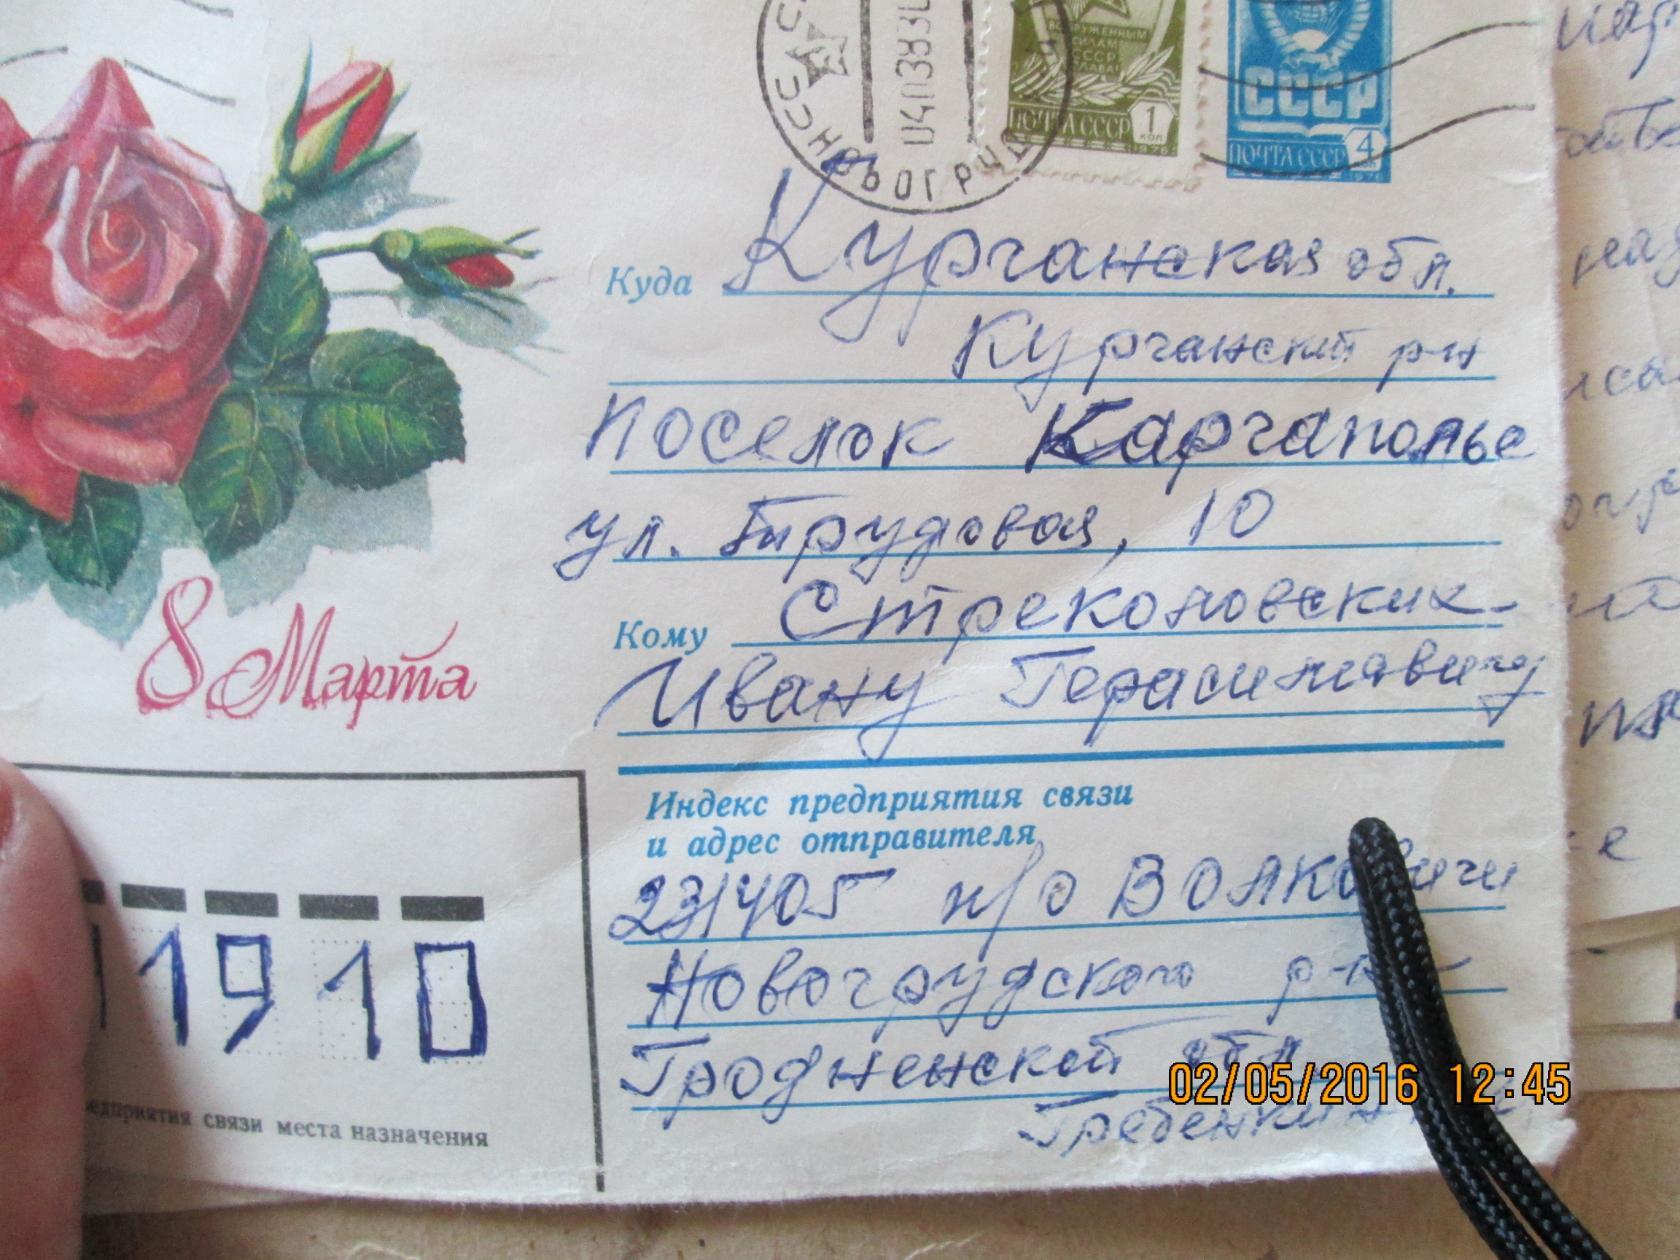 СССР
ПОЧТА СССР 1 коп
1976
СССР
ПОЧТА СССР 4 коп
1976
Куда Курганская обл.
Курганский р-н
поселок Каргаполье
ул. Трудовая, 10
Кому Стрекаловских
Ивану Герасимовичу
Индекс предприятия связи
и адрес отправителя
231405 п/о Волковичи
Новогрудского р-н
Гродненской обл
8 Марта
1910
предприятия связи места назначения
02/05/2016 12:45